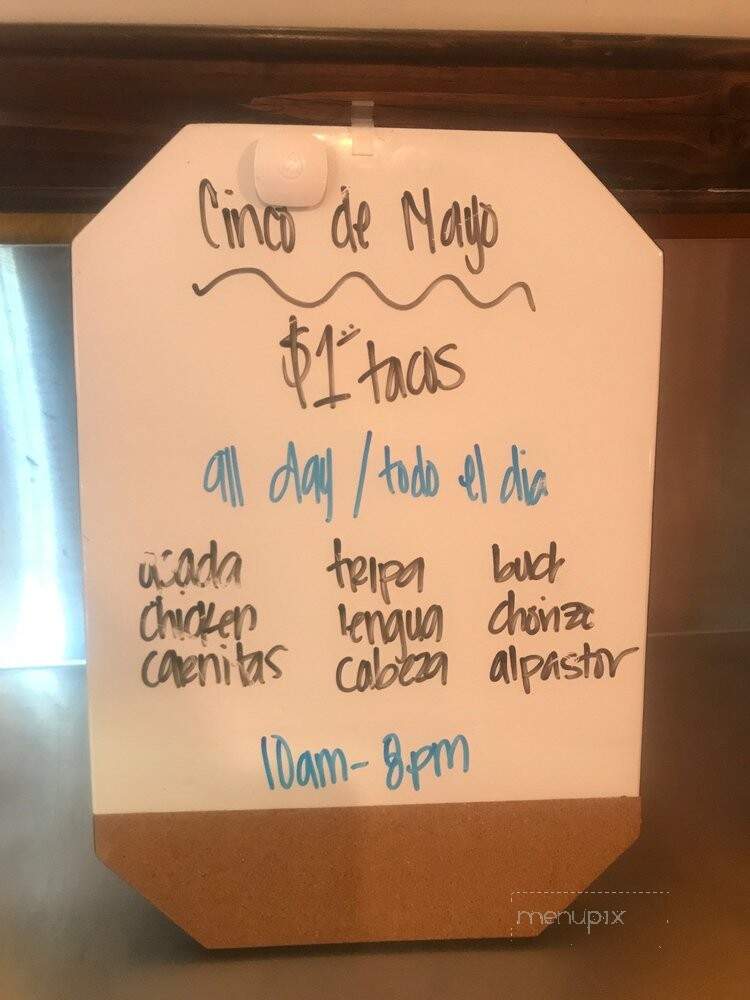 Cinco de Mayo
$1 tacos
all day / todo el dia
asada tripa buch
chicken lengua chorizo
carnitas cabeza al pastor
10am-8pm
menupix